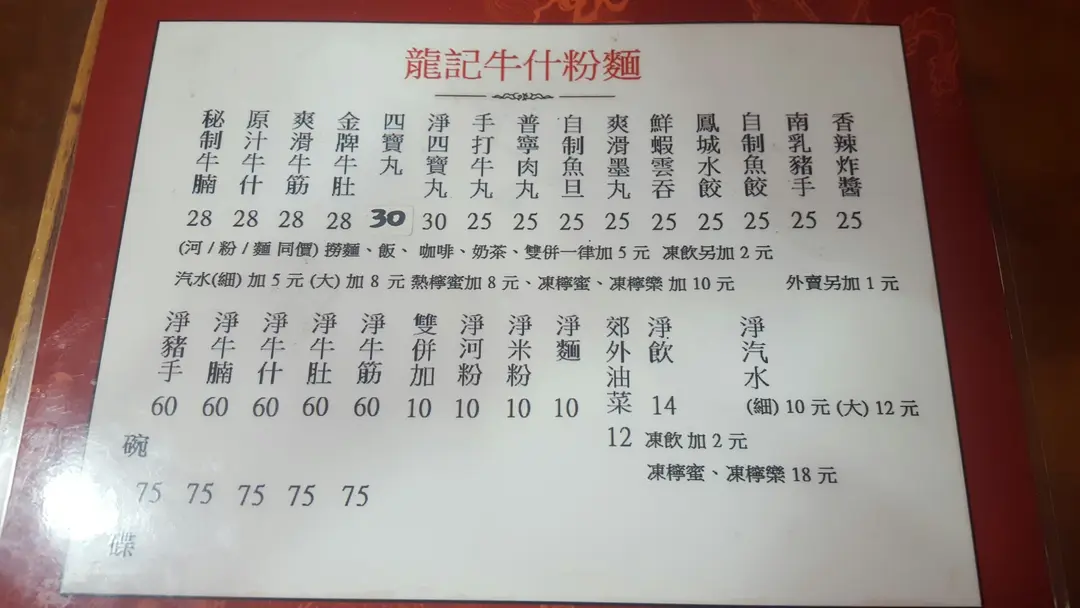 龍記牛什粉麵
秘制牛腩 28
原汁牛什 28
爽滑牛筋 28
金牌牛肚 28
四寶丸 30
淨四寶丸 30
手打牛丸 25
普寧肉丸 25
自制魚旦 25
爽滑墨丸 25
鮮蝦雲吞 25
鳳城水餃 25
自制魚餃 25
南乳豬手 25
香辣炸醬 25
(河/粉/麵 同價) 撈麵、飯、咖啡、奶茶、雙併一律加 5 元 凍飲另加 2 元
汽水(細) 加 5 元 (大) 加 8 元 熱檸蜜加 8 元、凍檸蜜、凍檸樂 加 10 元 外賣另加 1 元
淨豬手 60 75
淨牛腩 60 75
淨牛什 60 75
淨牛肚 60 75
淨牛筋 60 75
雙併加 10
淨河粉 10
淨米粉 10
淨麵 10
郊外油菜 12
淨飲 14
凍飲 加 2 元
凍檸蜜、凍檸樂 18 元
淨汽水
(細) 10 元 (大) 12 元
碗
碟